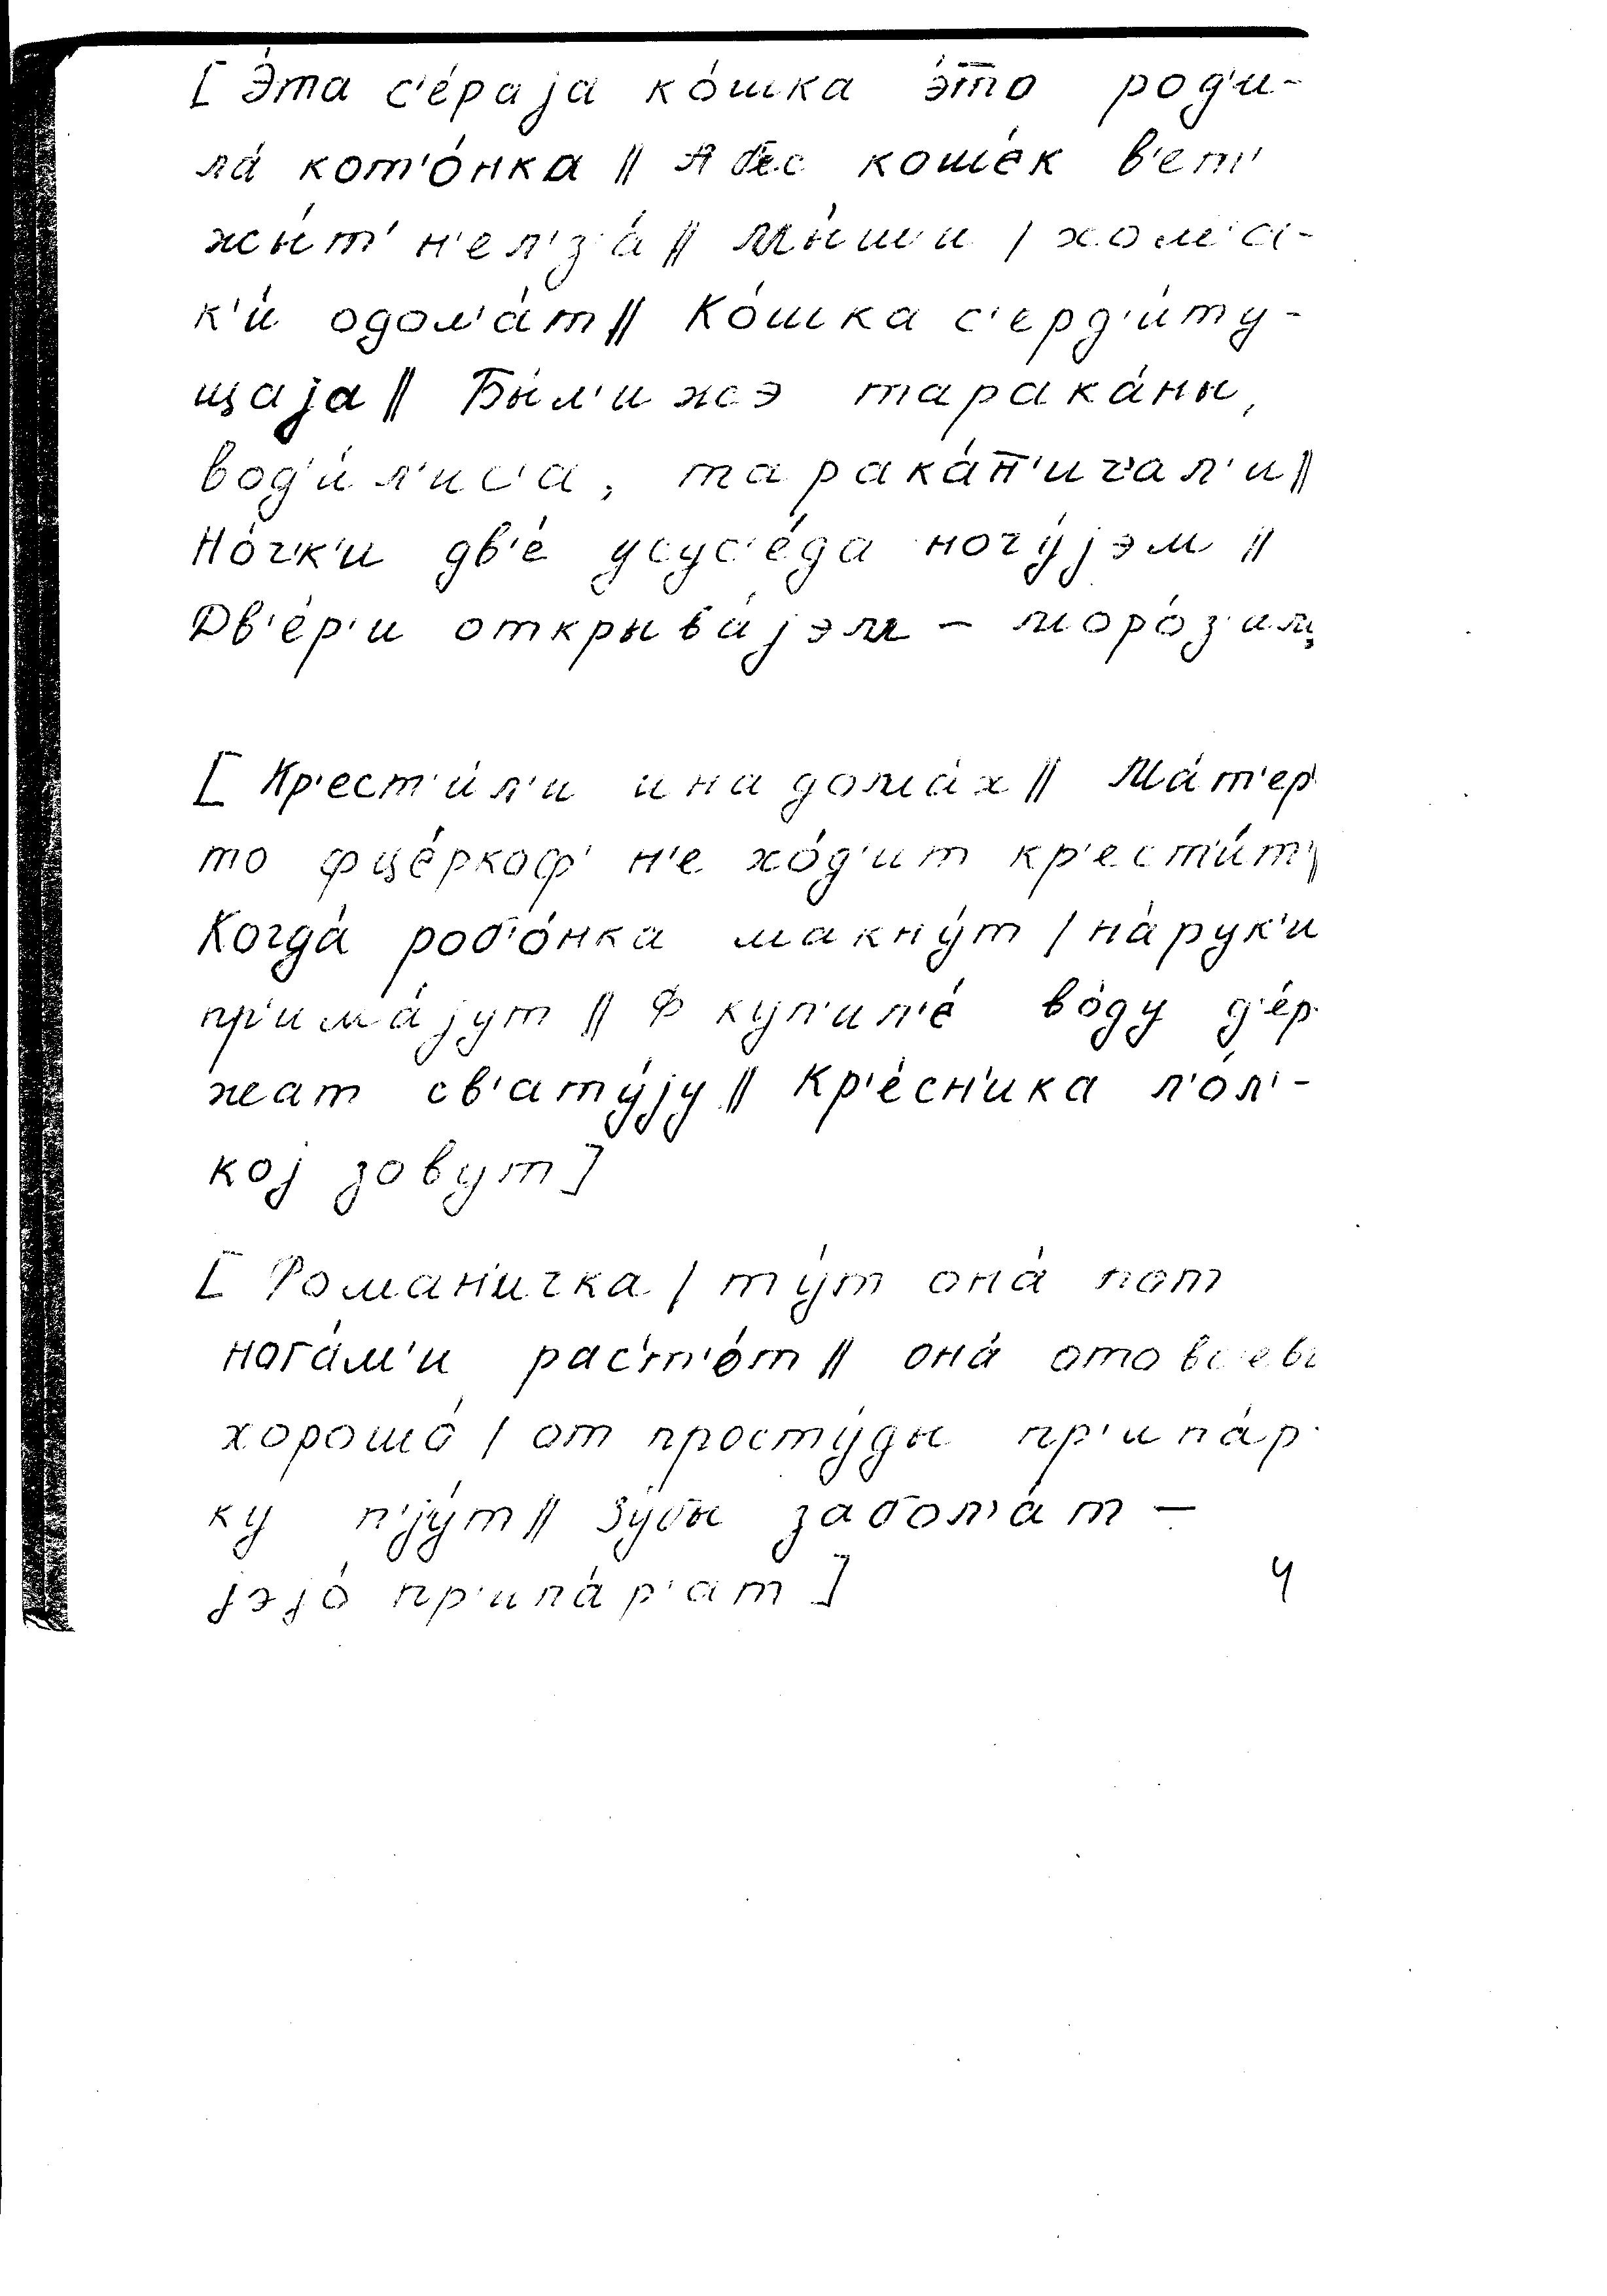 [ Э́та с'е́раjа ко́шка э́то род'и-
ла́ кот'о́нка || А бес коше́к в'ет'
жы́т' н'ел'з'а́ || Мы́шы / хом'а-
к'и́ одол'а́т || Ко́шка с'ерд'и́ту-
щаjа || Бы́л'и жэ тарака́ны,
вод'и́л'ис'а, тарака́н'ичал'и ||
Но́чк'и дв'е́ усус'е́да ночу́jэм ||
Дв'е́р'и открыва́jэм – моро́з'им
[ Кр'ест'и́л'и и на дома́х || Ма́т'ер'
то фце́ркоф' н'е хо́д'ит кр'ест'и́т' ||
Когда́ роб'о́нка макну́т / на́ рук'и
пр'има́jут || Ф куп'ил'е́ во́ду д'е́р
жат св'ату́jу || Кр'е́сн'ика л'о́л'-
коj зовут ]
[ Роман'ичка / ту́т она́ пот
нога́м'и раст'о́т || она́ ото
хорошо́ / от просту́ды пр'ипа́р
ку п'jу́т || Зу́бы забол'а́т –
jэjо́ пр'ипа́р'ат ]
4